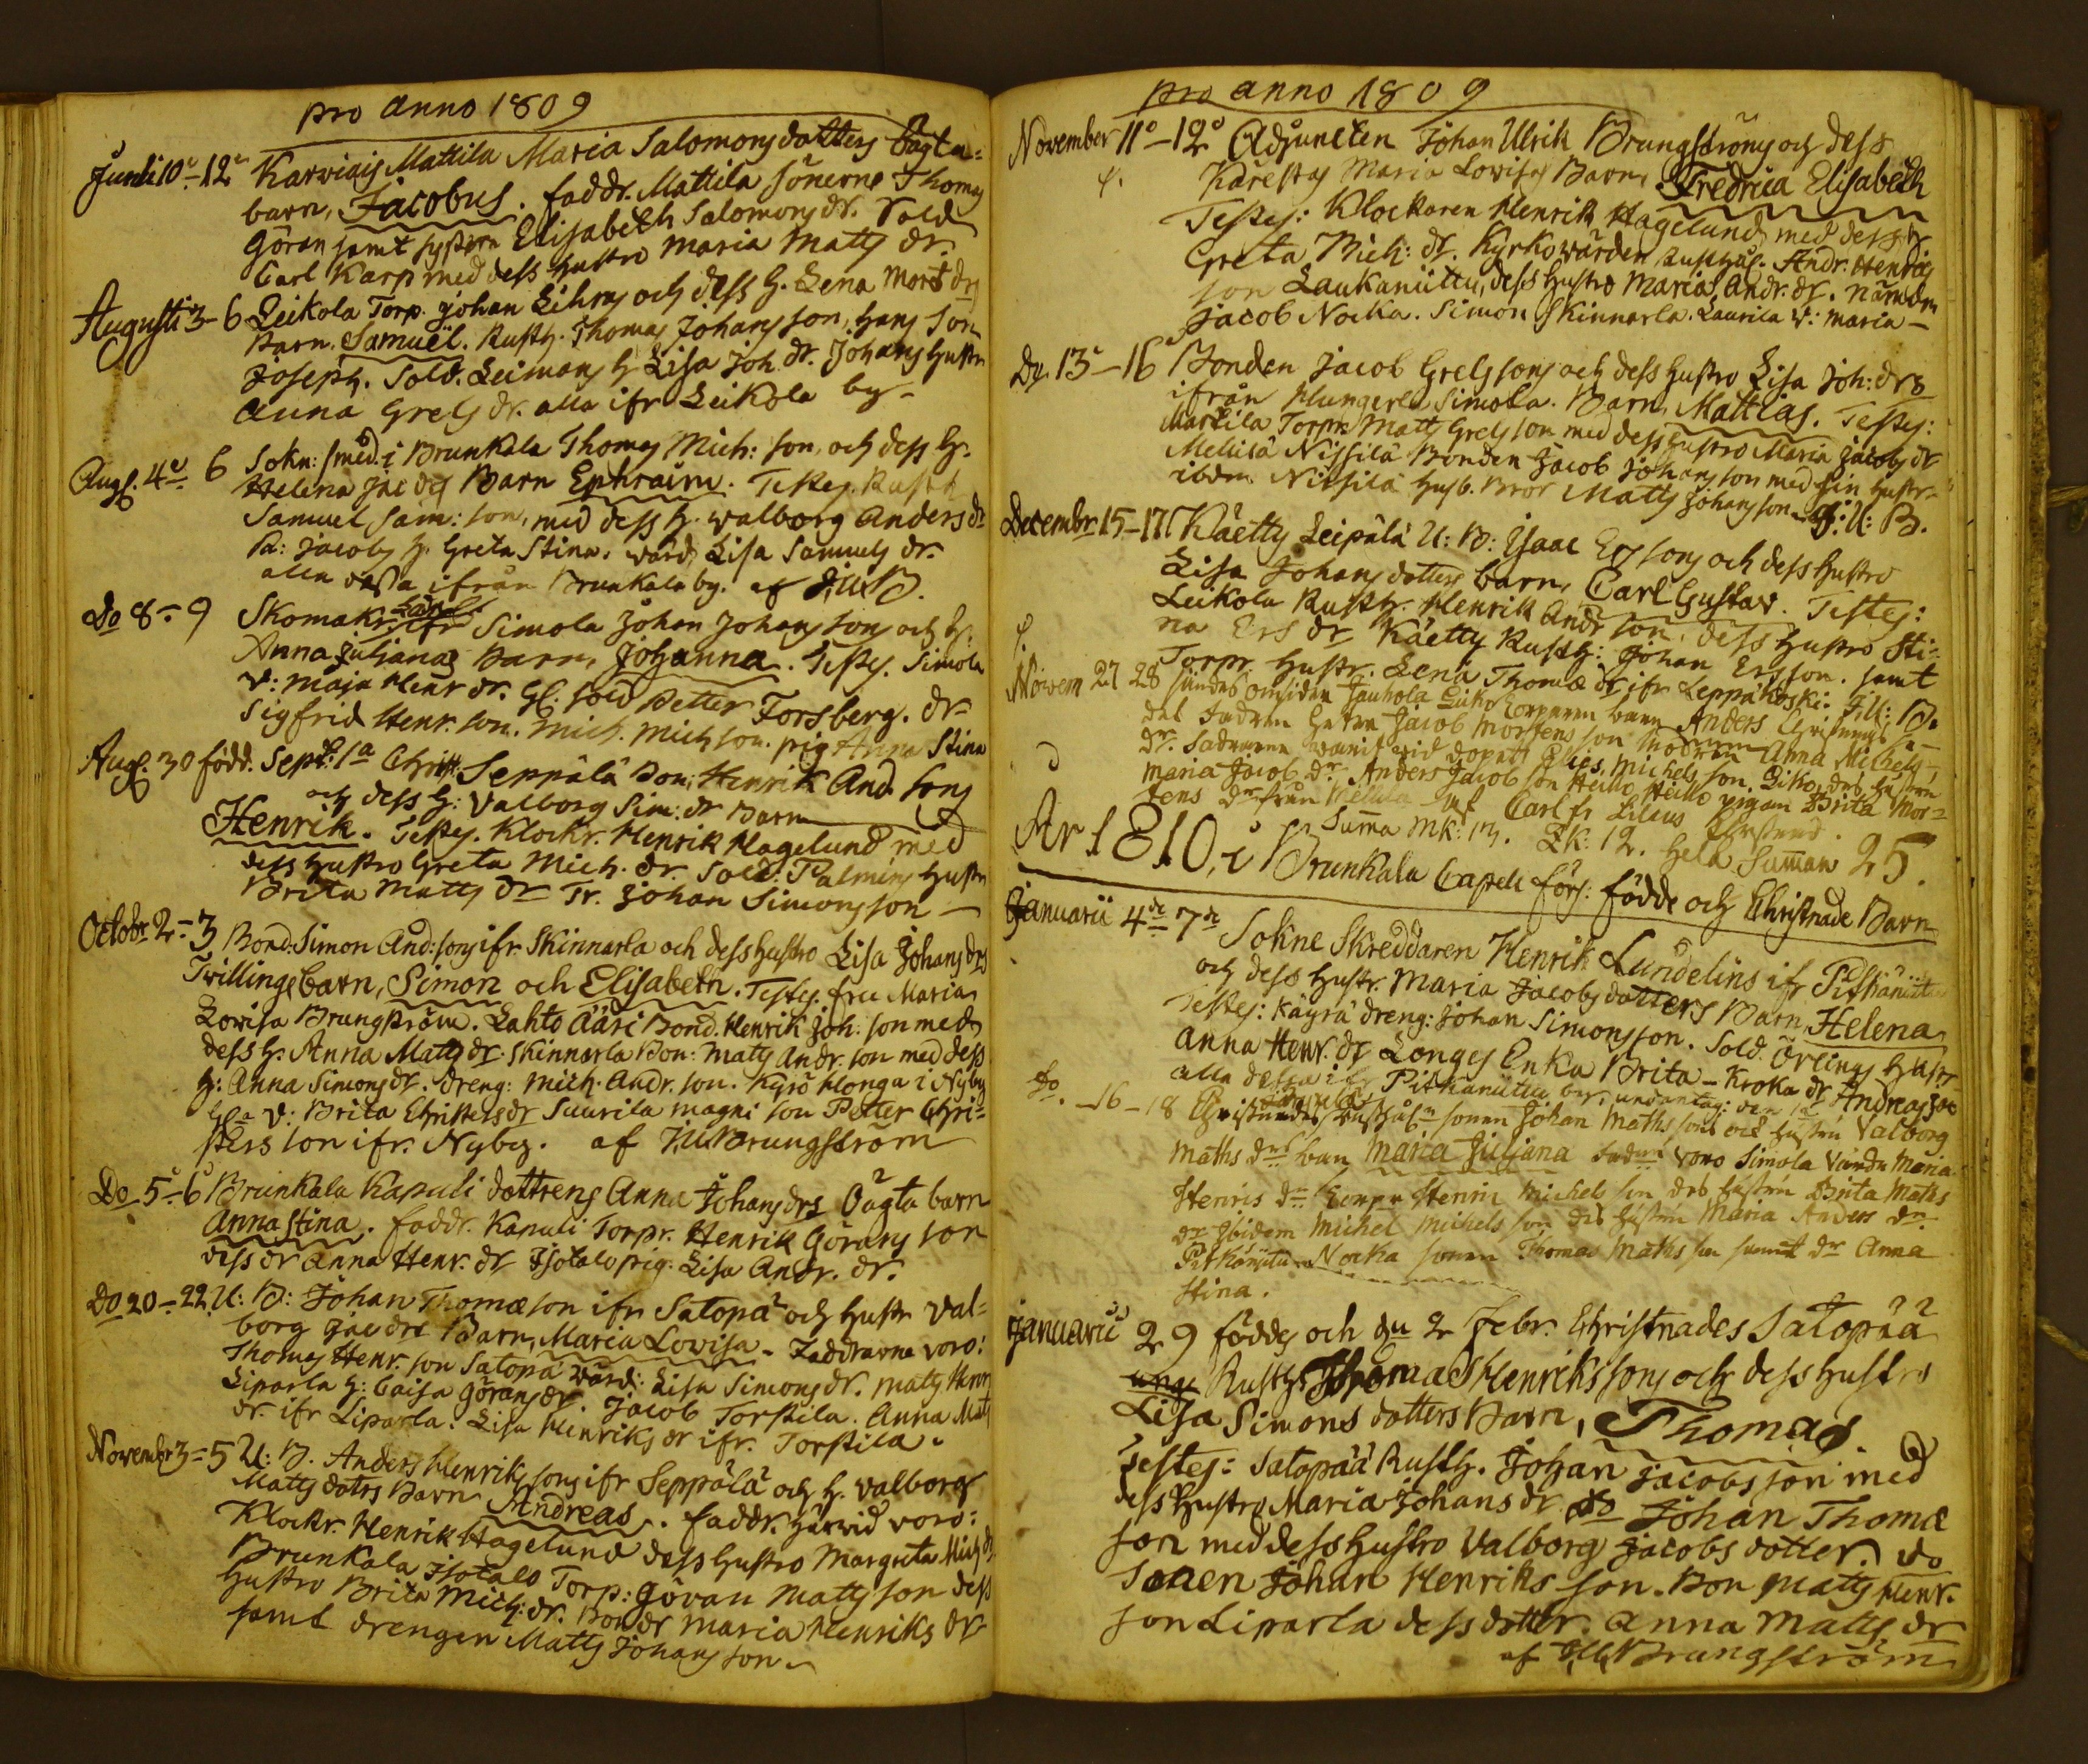 pro anno 1809
Junii 10 - 12 Karviais Mattila Maria Salomons dotters oägta
barn, Jacobus. faddr. Mattila sönerne Thomas
Göran samt systern Elisabeth Salomons dr. Sold
Carl Karp med dess hustro Maria Matts dr.
Augusti 3 - 6 Leikola Torp. Johan Lihrs och dess h. Lena Mort drs
Barn. Samuël. Rusth. Thomas Johans son, hans son
Joseph. Sold. Leimans h Lisa Joh. dr. Johans hustro
Anna Grels dr. alla ifr Leikola by -
Aug. 4 6 Sokn: smed. i Brunkala Thomas Mich: son, och dess h.
Helena Jac drs Barn Ephraim. Testes. Rusth
Samuel Sam: son, med dess h. Walborg Anders dr
Jacobs h. Greta Stina. värd. Lisa Samuels dr.
alla dessa ifrån Brunkala by. af J. U. B.
Do 8 - 9 Skomakr. ifr Simola Johan Johans sons och h.
Anna Julianas Barn, Johanna. Testes. Simola
v: Maja Henr dr. Gl. sold Petter Forsberg. dr
Sigfrid Henr. son. Mich. Mich son. pig Anna Stina
Aug. 30 född. Sept: 1a Christ. Seppälä Bon: Henrik And. sons
och dess h: Valborg Sim: dr Barn
Henrik. Testes. Klockr. Henrik Hagelund med
dess hustro Greta Mich. dr. Sold: Palmins hustro
Brita Matts dr Tr. Johan Simons son -
Octobr 2 - 3 Bond. Simon And: sons ifr. Skinnarla och dess hustro Lisa Johans drs
Twillinge barn, Simon och Elisabeth. Testes. fru Maria
Lowisa Brungström. Lahto Ääri Bond. Henrik Joh: son med
dess h. Anna Matts dr. Skinnarla Bon: Matts Andr. son med dess
h: Anna Simons dr. dreng: Mich. Andr. son. Kyrö Honga i Nyby
v: Brita Christers dr Suurila magni son Petter Chri-
sters son ifr. Nyby. af J: U: Brungström
Do 5 - 6 Brunkala Kapuli dottrens Anna Johans drs Oägta barn
Anna Stina. faddr. Kapuli Torpr. Henrik Görans son
dess dr Anna Henr. dr Isotalo pig. Lisa Andr. dr.
Do 20 - 22 U: B: Johan Thomæ son ifr Satopä och hustr Val-
borg Jac drs Barn, Maria Lowisa. Faddrarna voro:
Thomas Henr. son Satopä Värd: Lisa Simons dr. Matts Henr
Liparla h: Caisa Görans dr. Jacob Torstila. Anna Matts
dr. ifr Liparla. Lisa Henriks dr ifr. Torstila.
Novembr 3 - 5 U: B. Anders Henriks sons ifr Seppälä och h. Valborg
Matts dotrs Barn Andreas. faddr. härvid voro:
Klockr. Henrik Hagelund dess hustro Margreta Mich dr.
Brunkala Isotalo Torp: Göran Matts son dess
hustro Brita Mich: dr. Bon dr Maria Henriks dr
samt drengen Matts Johans son.
pro anno 1809
November 11 - 12 Adjuncten Johan Ulrik Brungströms och dess
Kärestas Maria Lowisas Barn, Fredrica Elisabeth
Testes: Klockaren Henrik Hagelund med dess h
Greta Mich: dr. Kyrkowärden Rusthål. Andr. Henrics
son Laukanüttu, dess hustro Maria Andr. dr. nämdem
Jacob Nocka. Simon Skinnarla. Laurila v: Maria -
Do 13 - 16 Bonden Jacob Grels sons och dess hustro Lisa Joh: drs
ifrån Hungerla Simola. Barn, Mattias. Testes:
Markila Torpr Matts Grels son med dess hustro Maria Jacobs dr
Mellilä Nissilä Bonden Jacob Johans son med sin hustr.
ibdm Nissilä husb. Bror Matts Johans son. J: U: B.
Decembr 15 - 17 Käetty Leipälä U: B: Isaac Ers sons och dess hustro
Lisa Johans dotters barn, Carl Gustav. Testes:
Leikola Rusth. Henrik Andr son, dess hustro Sti-
na Ers dr Käetty Rusth: Johan Ers son. samt
Torpr hustr. Lena Thomæ dr ifr Leppäkoski. J: U: B.
Novem 27 28 Liiko Torparen barn Anders Christnas
Jacob Mortens son modren Anna Michels
dr. Elies Michels son, Liiko, des hustru
Maria Jacob dr. Anders Jacob son Heiko Heiko pigan Brita Mor-
tens dr från Mellila af Carl fr Lilius
Summa Mk: 13. Qk: 12. hela Summan 25.
År 1810, i Brunkala Capell förs: födde och Christnade Barn
Januarii 4de 7de Sokne Skreddaren Henrik Lundelins ifr Pitkänüttu
och dess hustr. Maria Jacobs dotters Barn, Helena
Testes: Käyrä dreng: Johan Simons son. Sold. Örlings hustr
Anna Henr. dr Longes Enka Brita - Kroka dr Andreas
alla dessa ifr Pitkänüttu by, undantag: den
Do. - 16 - 18 Christnades sonen Johan Maths sons och hustru Valborg
Maths drs barn Maria Juliana voro Simola Värdn Maria
Henris dr Henric Michels son des hustru Brita Maths
dr Ibidem Michel Michels son des hustru Maria Anders dr
Pitkänütu Nocka sonen Thomas Maths son samt dr Anna
Stina.
Januarii 29 föddes och du 2 Febr. Christnades Satopää
Rusth: Thomas Henriks sons och dess hustro
Lisa Simons dotters Barn, Thomas.
Testes: Satopää Rusth. Johan Jacobs son med
dess hustro Maria Johans dr do Johan Thomæ
son med dess hustro Valborg Jacobs dotter. do
Sonen Johan Henriks son. Bon Matts Henr.
son Liparla dess dotter. Anna Matts dr
af J: U: Brungström